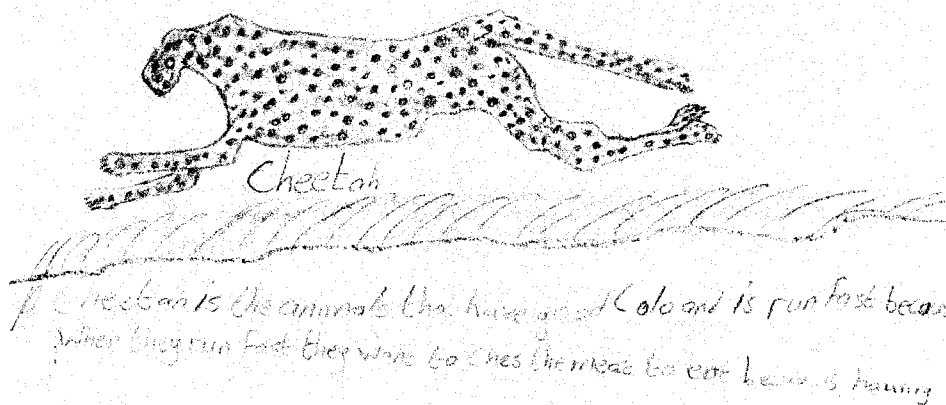 Cheetah
A Cheetah is the animals that have good Colo and is run fast becau
when they run fast they want to Ches the meat to eat becaus is having